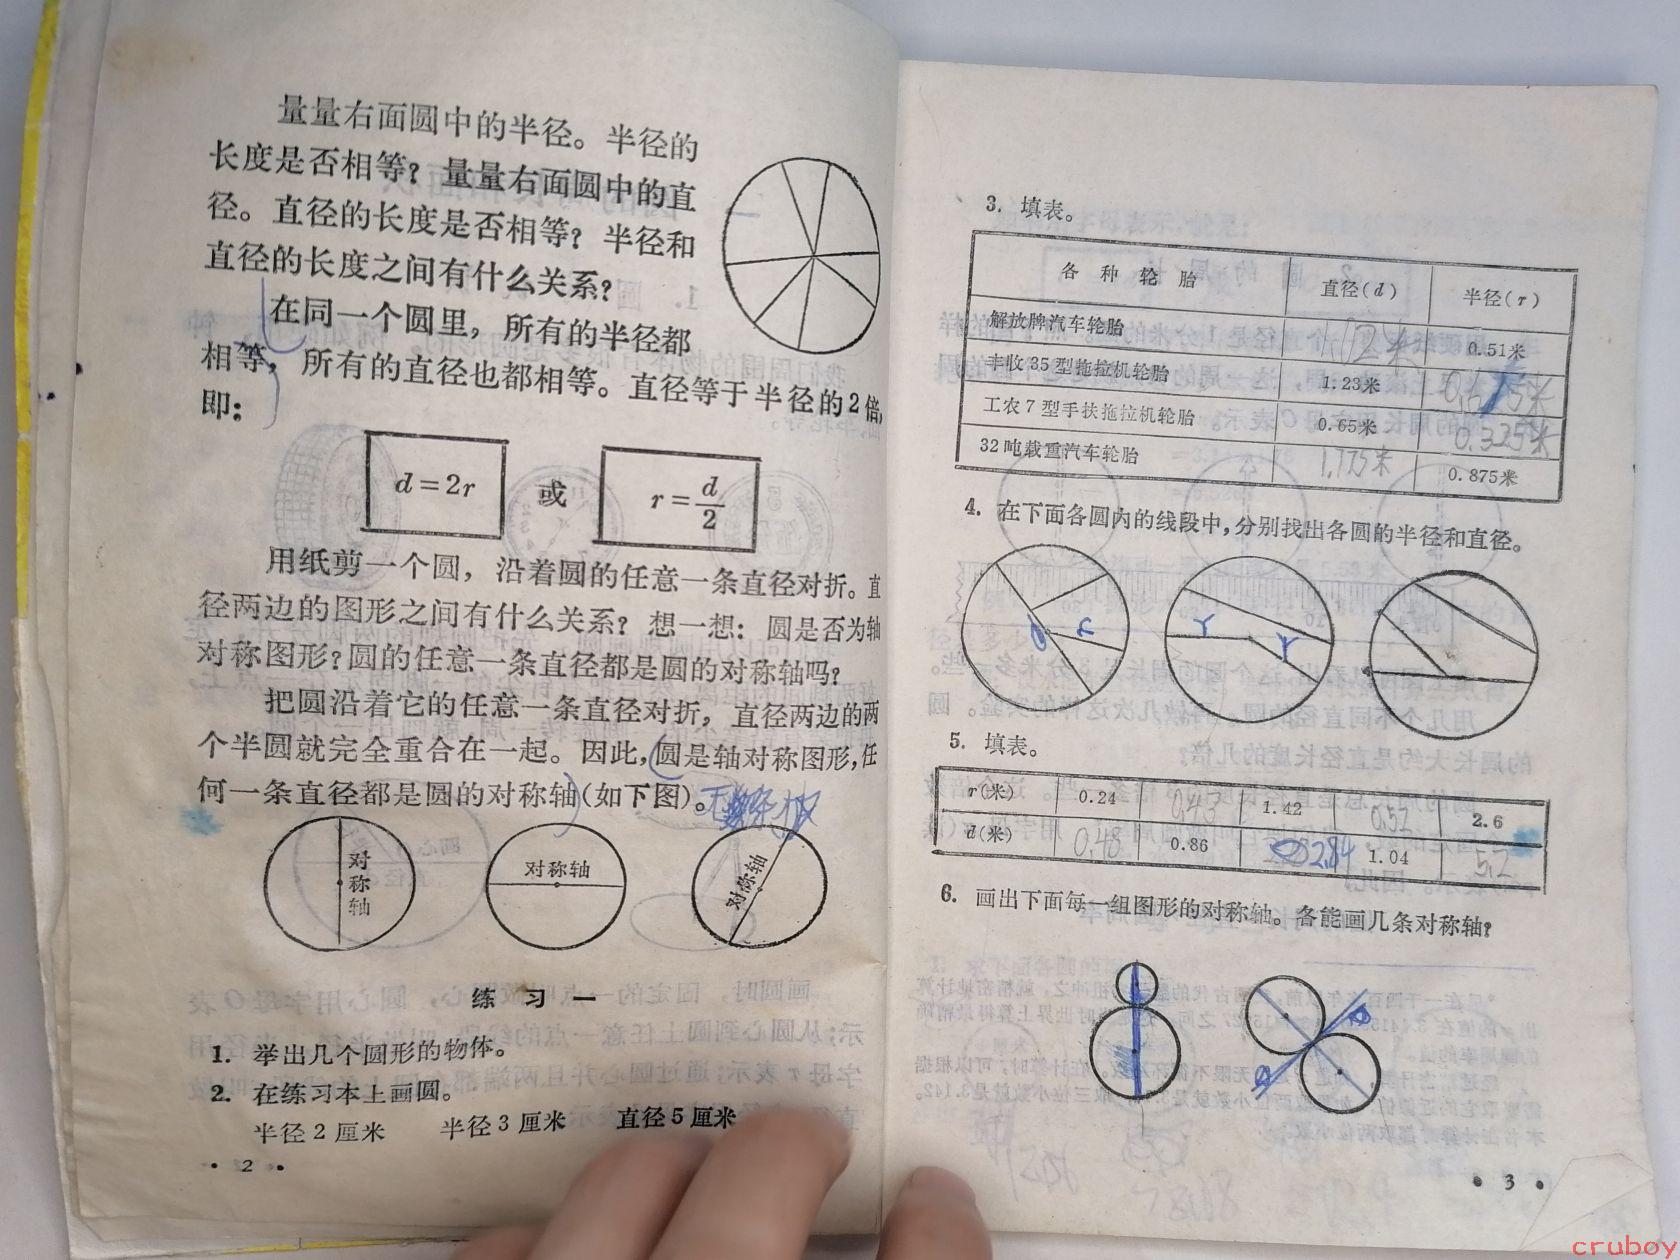 量量右面圆中的半径。半径的
长度是否相等？量量右面圆中的直
径。直径的长度是否相等？半径和
直径的长度之间有什么关系？
在同一个圆里，所有的半径都
相等，所有的直径也都相等。直径等于半径的2倍，
即：
d=2r 或 r=d/2
用纸剪一个圆，沿着圆的任意一条直径对折。直
径两边的图形之间有什么关系？想一想：圆是否为轴
对称图形？圆的任意一条直径都是圆的对称轴吗？
把圆沿着它的任意一条直径对折，直径两边的两
个半圆就完全重合在一起。因此，圆是轴对称图形，任
何一条直径都是圆的对称轴(如下图)。
对称轴
对称轴
对称轴
练习一
1. 举出几个圆形的物体。
2. 在练习本上画圆。
半径2厘米 半径3厘米 直径5厘米
·2·
3. 填表。
各种轮胎 直径(d) 半径(r)
解放牌汽车轮胎 0.51米
丰收35型拖拉机轮胎 1.23米
工农7型手扶拖拉机轮胎 0.65米 0.325米
32吨载重汽车轮胎 1.775米 0.875米
4. 在下面各圆内的线段中，分别找出各圆的半径和直径。
r r
5. 填表。
r(米) 0.24 0.43 1.42 0.52 2.6
d(米) 0.48 0.86 2.84 1.04 5.2
6. 画出下面每一组图形的对称轴。各能画几条对称轴？
·3·
cruboy